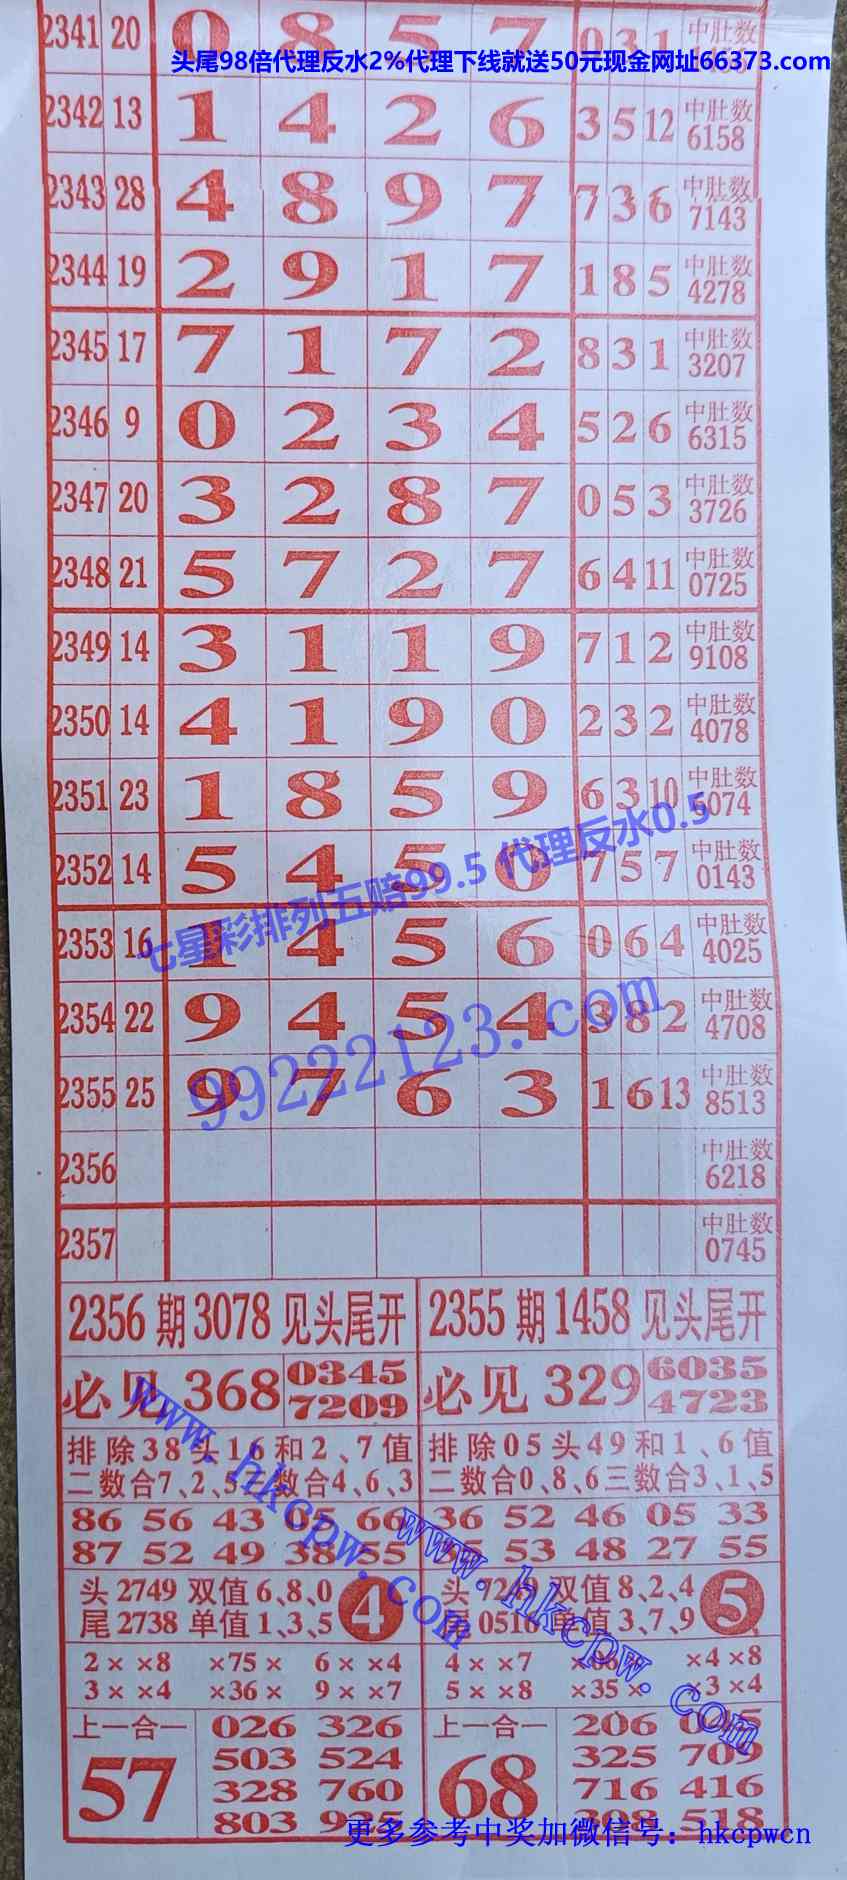 2341 20 0 8 5 7 0 3 1 中肚数
头尾98倍代理反水2%代理下线就送50元现金网址66373.com
2342 13 1 4 2 6 3 5 12 中肚数 6158
2343 28 4 8 9 7 7 3 6 中肚数 7143
2344 19 2 9 1 7 1 8 5 中肚数 4278
2345 17 7 1 7 2 8 3 1 中肚数 3207
2346 9 0 2 3 4 5 2 6 中肚数 6315
2347 20 3 2 8 7 0 5 3 中肚数 3726
2348 21 5 7 2 7 6 4 11 中肚数 0725
2349 14 3 1 1 9 7 1 2 中肚数 9108
2350 14 4 1 9 0 2 3 2 中肚数 4078
2351 23 1 8 5 9 6 3 10 中肚数 6074
2352 14 5 4 5 0 7 5 7 中肚数 0143
七星彩排列五赔99.5 代理反水0.5
2353 16 1 4 5 6 0 6 4 中肚数 4025
2354 22 9 4 5 4 3 8 2 中肚数 4708
99222123.com
2355 25 9 7 6 3 1 6 13 中肚数 8513
2356 中肚数 6218
2357 中肚数 0745
2356 期 3078 见头尾开
必见 368 0345
7209
排除38头16和2、7值
二数合7、2、5 数合4、6、3
86 56 43 05 66
87 52 49 38 55
头 2749 双值 6、8、0
尾 2738 单值 1、3、5
4
2 × ×8 ×75 × 6 × ×4
3 × ×4 ×36 × 9 × ×7
上一合一
57
026 326
503 524
328 760
803 935
2355 期 1458 见头尾开
必见 329 6035
4723
排除05头49和1、6值
二数合0、8、6三数合3、1、5
36 52 46 05 33
53 48 27 55
头 双值 8、2、4
0516 单值 3、7、9
5
4 × ×7 ×4 ×8
5 × ×8 ×35 × ×3 ×4
上一合一
68
206 045
325 709
716 416
308 518
www.hkcpw.com
www.hkcpw.com
更多参考中奖加微信号：hkcpwcn